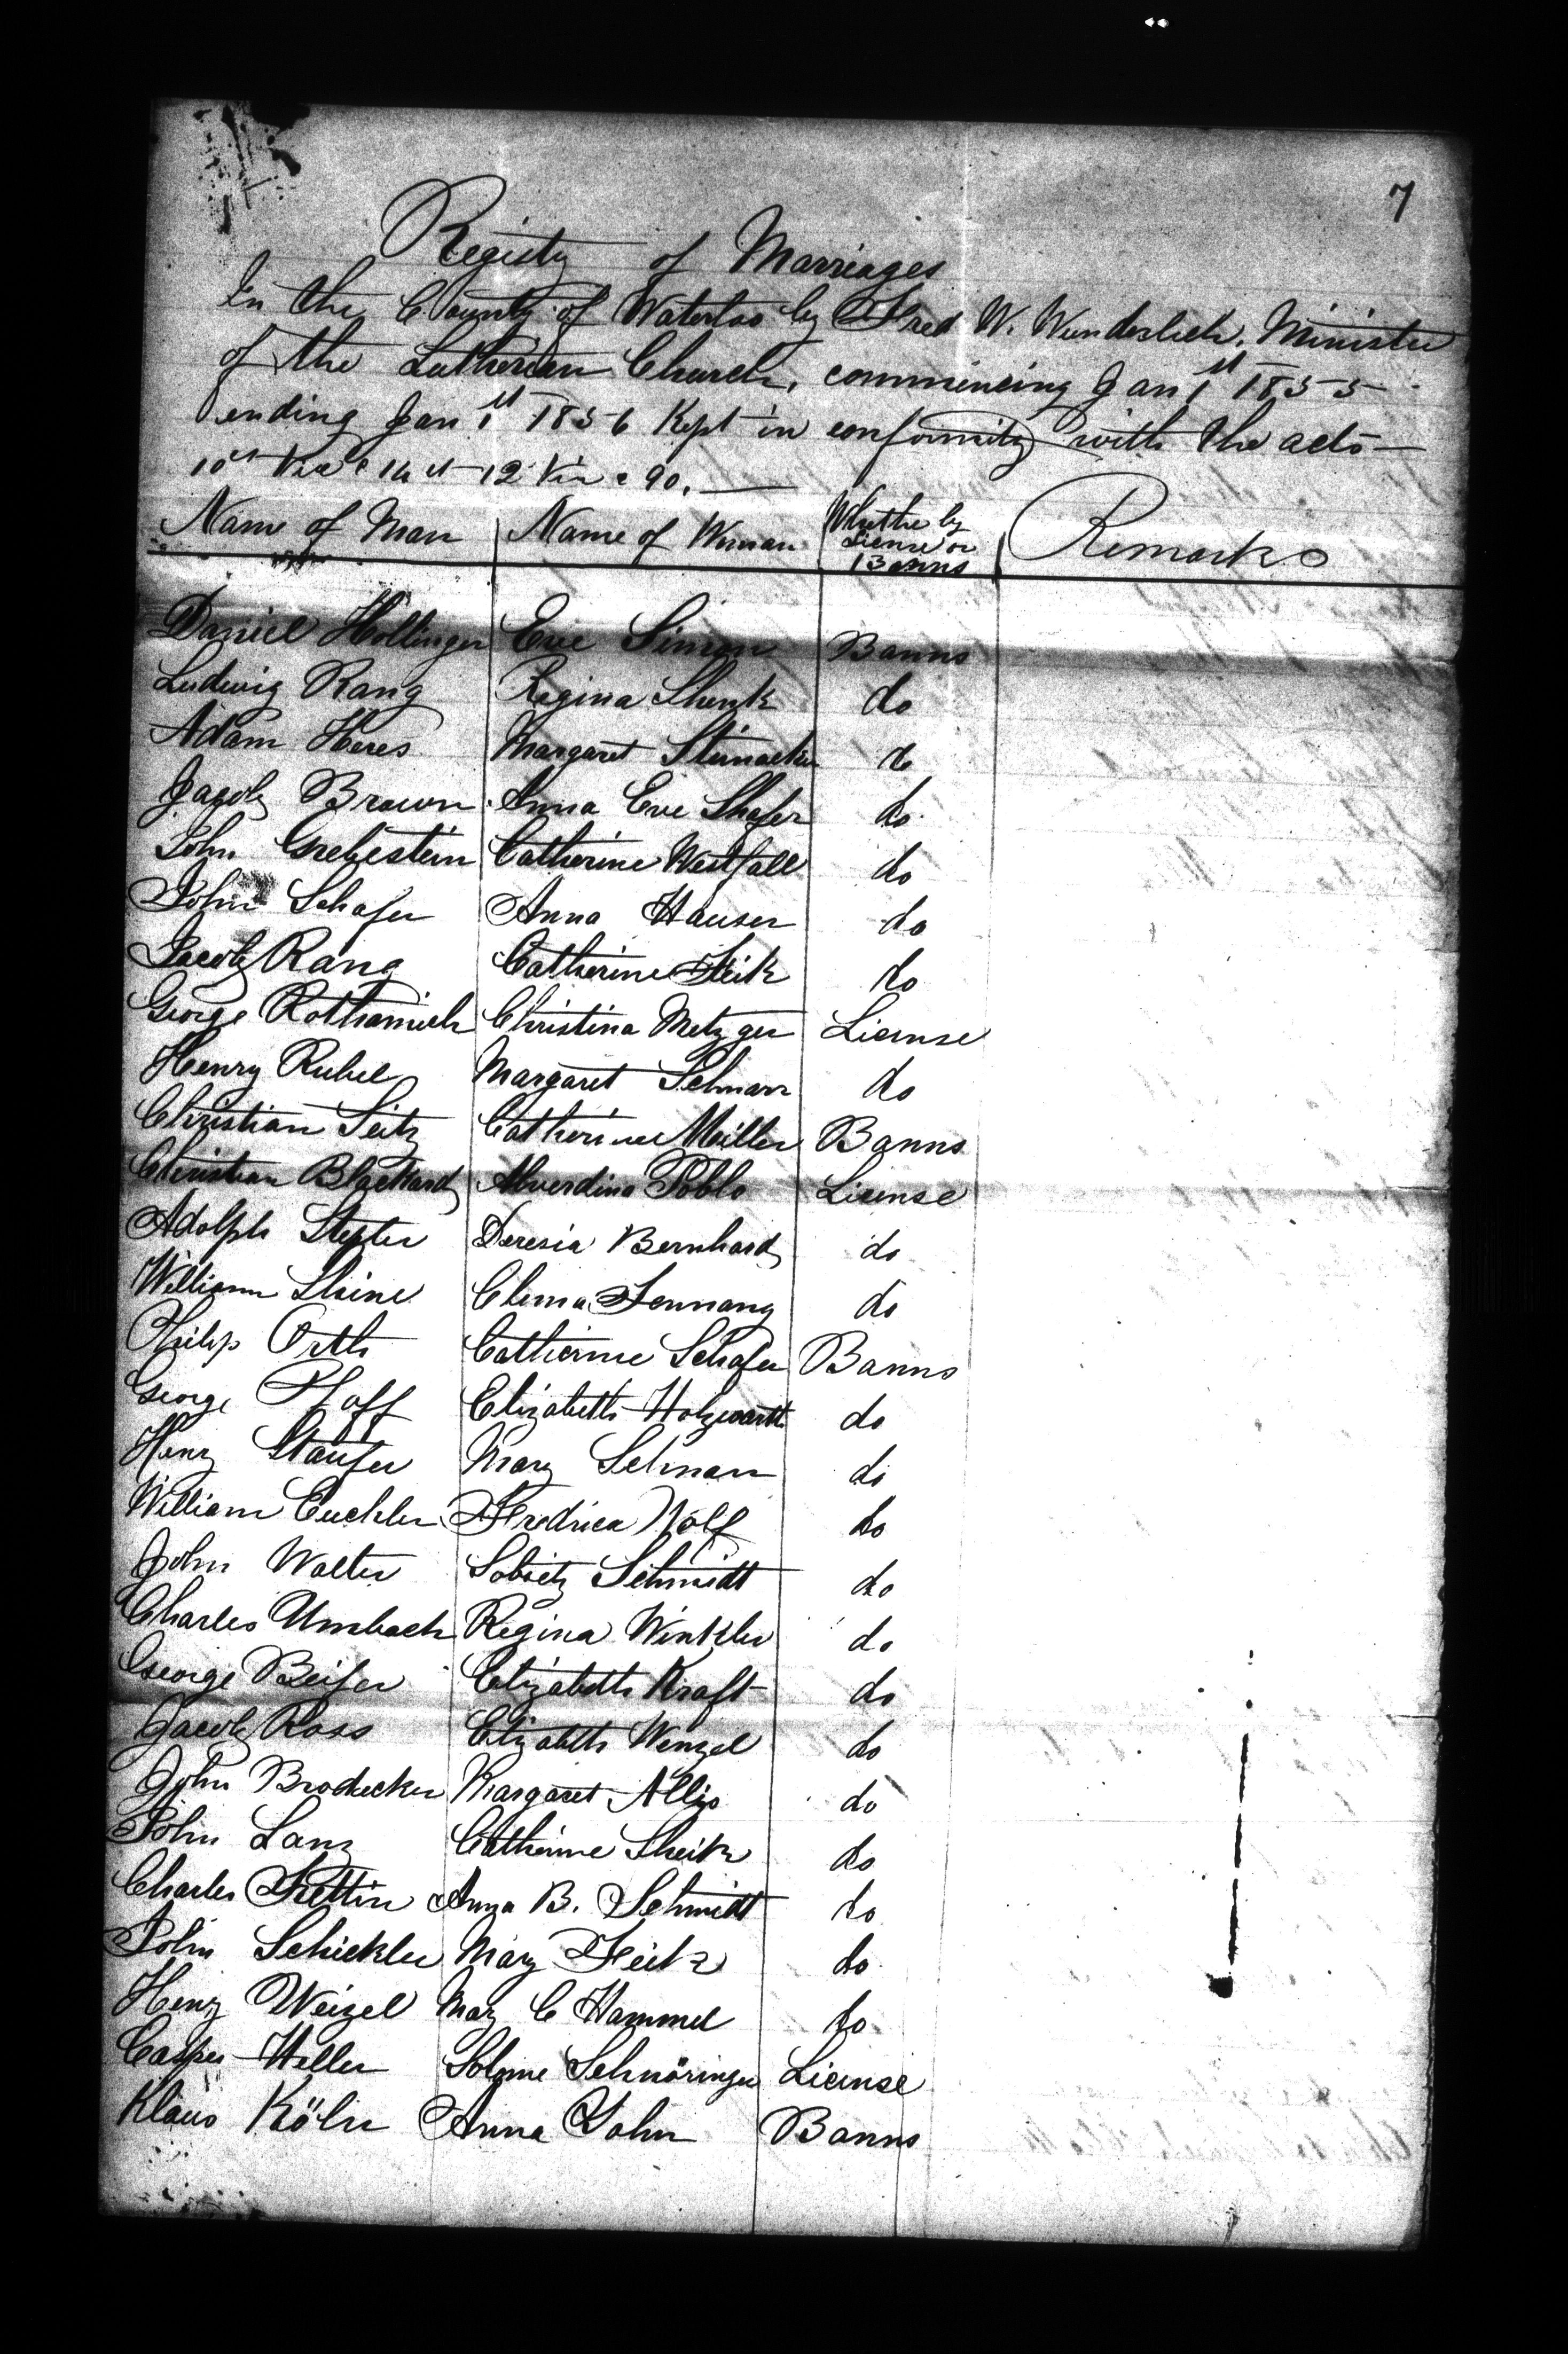 7
Registry of Marriages
In the County of Waterloo by Fred W. Wunderlich, Minister
of the Lutheran Church, commencing Jan 1st 1855
ending Jan 1st 1856 Kept in conformity with the acts
12 Vic c 90.
Name of Man Name of Woman Whether by License or Banns Remarks
Daniel Hollinger Eve Simon Banns
Ludwig Rang Regina Shenk do
Adam Heres Margaret Steinacker do
Jacob Brown Anna Eve Shafer do
John Grebestein Catherine Westfall do
John Schafer Anna Hauser do
Jacob Rang Catherine Feik do
George Rothamich Christina Metzger License
Henry Rubel Margaret Schnarr do
Christian Seitz Catherine Miller Banns
Christian Blackard Alverdina Poblo License
Adolph Stepter Deresia Bernhard do
William Shine Clema Fennang do
Philip Orth Catherine Schafer Banns
George Pfaff Elizabeth Holzwarth do
Henry Staufer Mary Schnarr do
William Euchler Fredrica Wolf do
John Walter Schmidt do
Charles Umbach Regina Winkler do
George Beifer Elizabeth Kraft do
Jacob Ross Elizabeth Wenzel do
John Brodecker Margaret Allis do
John Lanz Catherine Sheik do
Charles Frettin Anna B. Schmidt do
John Schickler Mary Feik do
Henry Weizel Mary C Hammel do
Casper Heller Solome Schnöringer License
Klaus Köln Anna John Banns